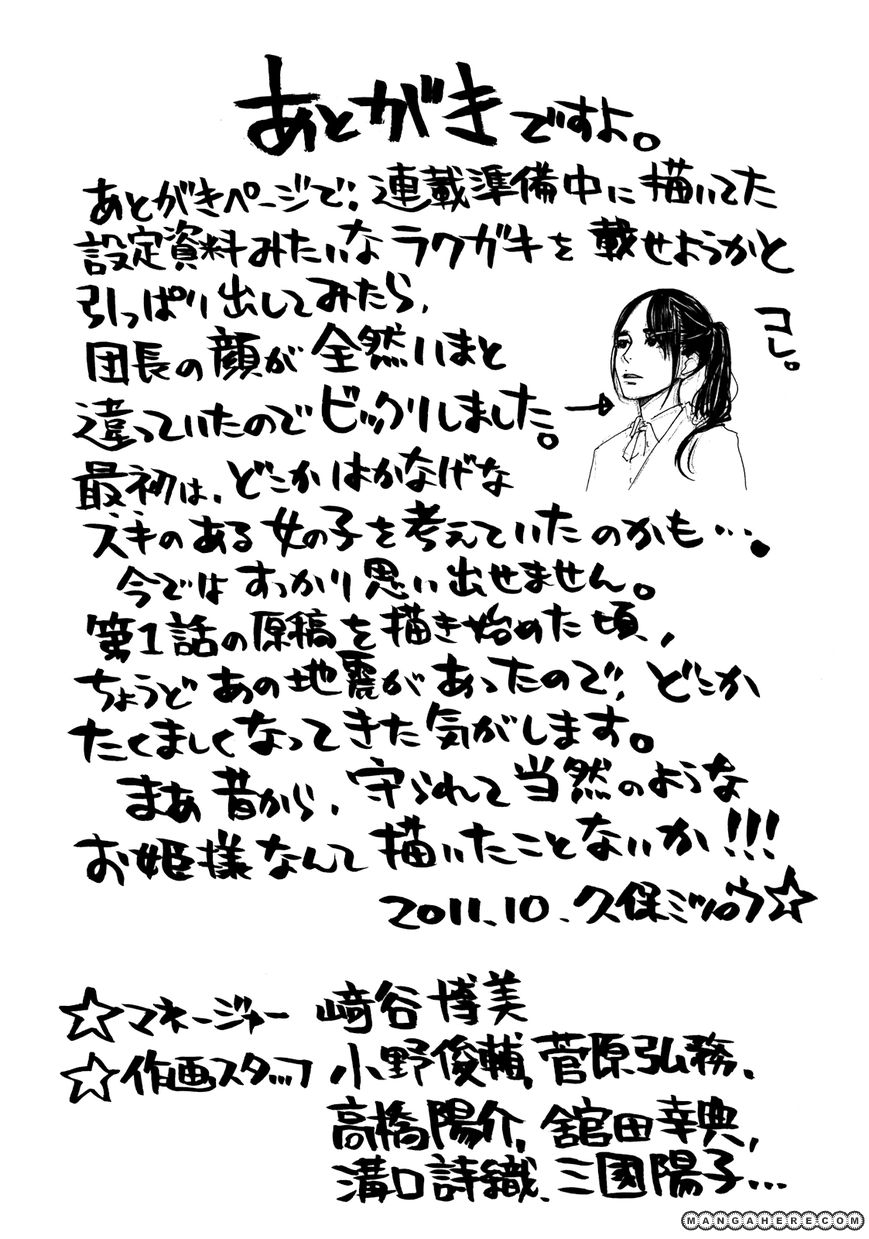 あとがきですよ。
あとがきページで、連載準備中に描いてた
設定資料みたいなラクガキを載せようかと
引っぱり出してみたら、
コレ。
団長の顔が全然いまと
違っていたのでビックリしました。→
最初は、どこかはかなげな
ズキのある女の子を考えていたのかも…。
今ではすっかり思い出せません。
第1話の原稿を描き始めた頃、
ちょうどあの地震があったので、どこか
たくましくなってきた気がします。
まあ昔から、守られて当然のような
お姫様なんて描いたことないか!!!
2011.10.久保ミツロウ☆
☆マネージャー 﨑谷博美
☆作画スタッフ 小野俊輔、菅原弘務、
高橋陽介、舘田幸典、
溝口詩織、三國陽子…
MANGAHERE.COM